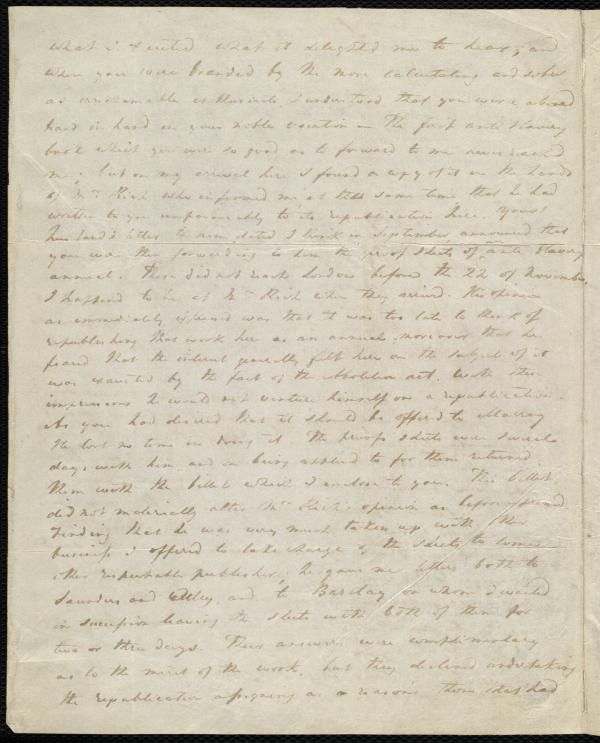 what I & united what it delighted me to hear, and
when you were branded by the more calculating and sober
as unreasonable enthusiasts, I understood that you were abroad
hand in hand in your noble vocation in the first anti slavery
book which you were so good as to forward to me never reached
me; but on my arrival here I found a copy of it in the hands
of Mr Rich who informed me at the same time that he had
written to you unfavorably to its republication here. Your
husband's letter to him, dated I think in September announced that
you were then forwarding to him the proof sheets of, anti slavery
annual. These did not reach London before the 22 of November,
I happened to be at Mr Rich when they arrived. His opinion
as immediately expressed was that it was too late to think of
republishing that work here as an annual, moreover that he
feared that the interest generally felt here on the subject of it
was exausted by the fact of the Abolition act. With these
impressions he would not venture himself on a republication.
As you had desired that it should be offered to Murray
He lost no time in doing it. The proof sheets were several
days with him and on being applied to for them returned
them with the billet which I enclose to you. This billet
did not materially alter Mr Rich's opinion as before
Finding that he was very much taken up with other
business I offered to take charge of the sheets to some
other respectable publisher; he gave me letters both to
Saunders and Otley, and to Barclay on whom I waited
in succession leaving the sheets with both of them for
two or three days. Their answers were complimentary
as to the merit of the work, but they declined undertaking
the republication assigning as a reason the had